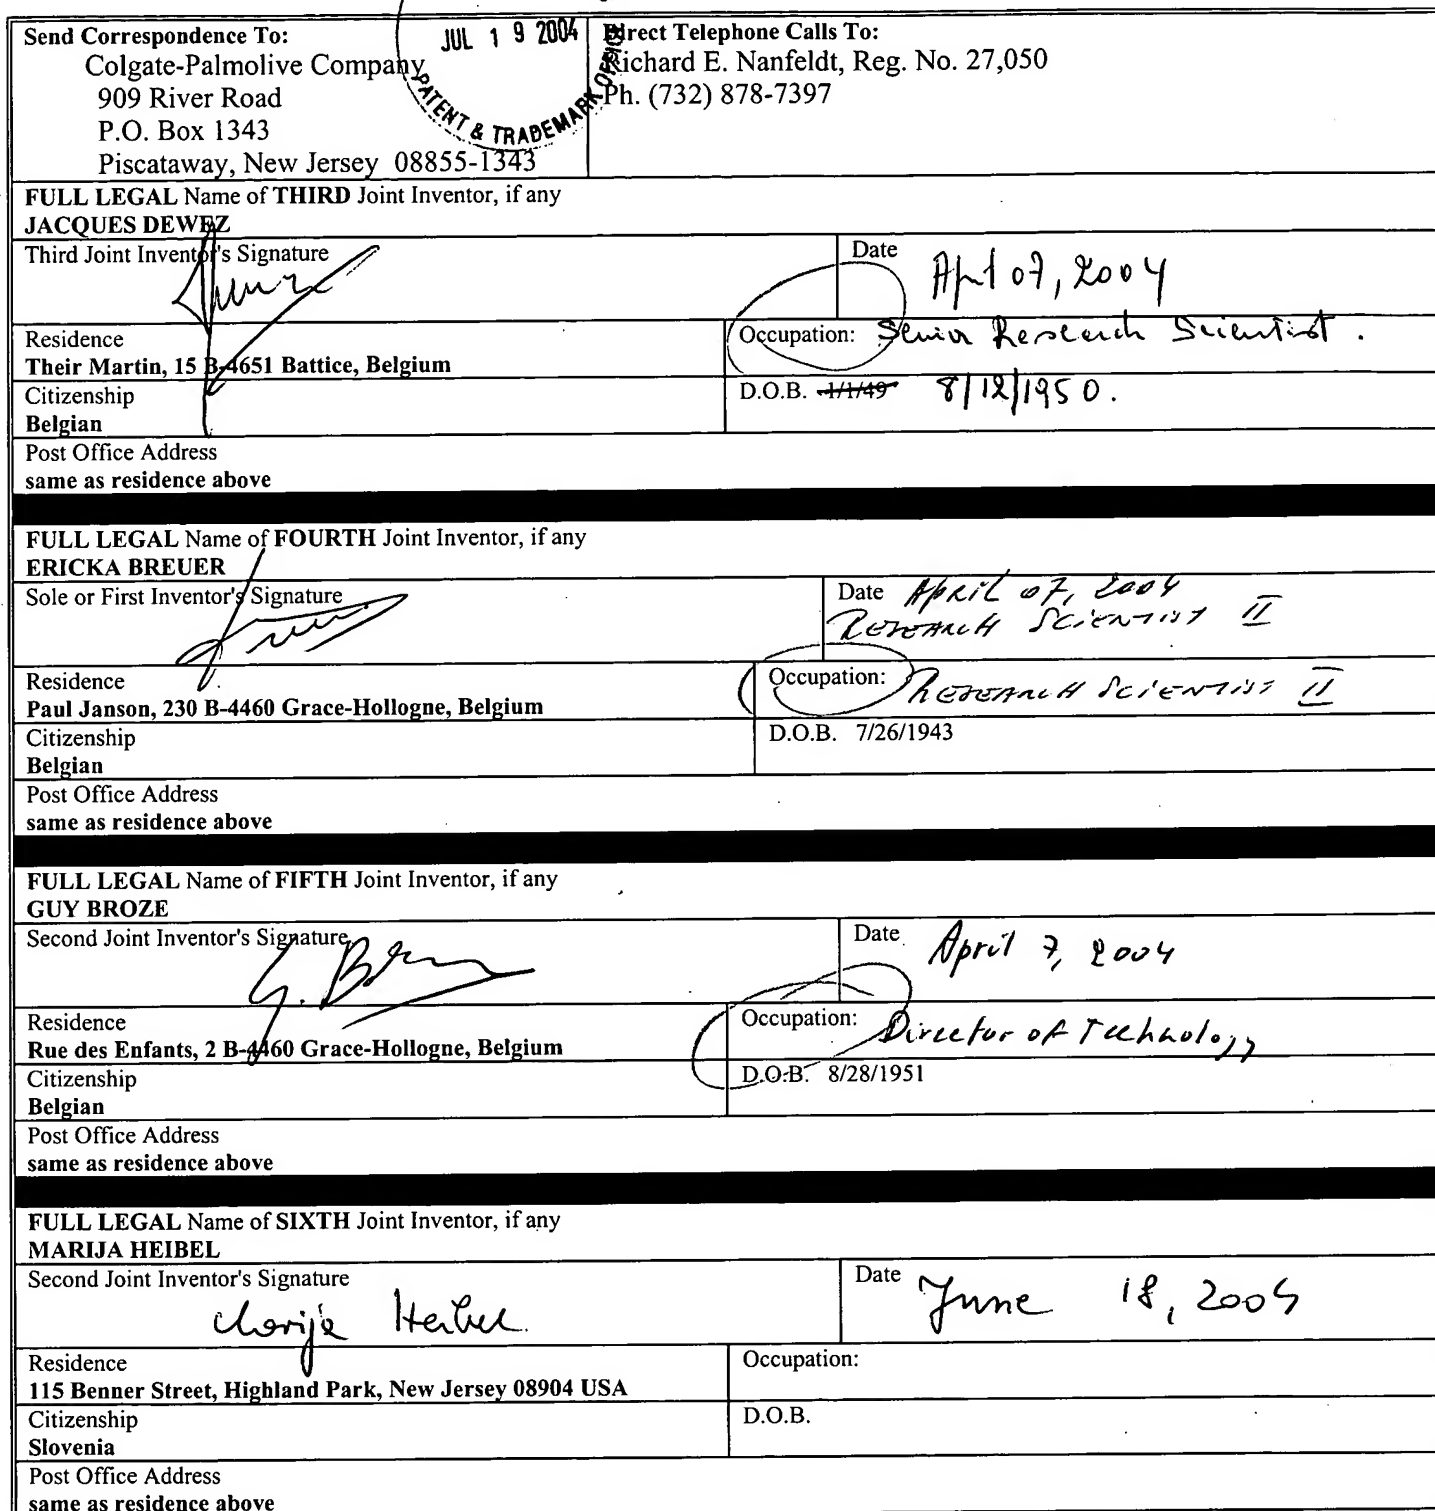 Send Correspondence To:
Colgate-Palmolive Company
909 River Road
P.O. Box 1343
Piscataway, New Jersey 08855-1343
JUL 19 2004
PATENT & TRADEMARK OFFICE
Direct Telephone Calls To:
Richard E. Nanfeldt, Reg. No. 27,050
Ph. (732) 878-7397
FULL LEGAL Name of THIRD Joint Inventor, if any
JACQUES DEWEZ
Third Joint Inventor's Signature
Date April 07, 2004
Residence
Their Martin, 15 B-4651 Battice, Belgium
Occupation: Senior Research Scientist.
Citizenship
Belgian
D.O.B. 1/1/49 8/12/1950.
Post Office Address
same as residence above
FULL LEGAL Name of FOURTH Joint Inventor, if any
ERICKA BREUER
Sole or First Inventor's Signature
Date April 07, 2004
RESEARCH SCIENTIST II
Residence
Paul Janson, 230 B-4460 Grace-Hollogne, Belgium
Occupation: RESEARCH SCIENTIST II
Citizenship
Belgian
D.O.B. 7/26/1943
Post Office Address
same as residence above
FULL LEGAL Name of FIFTH Joint Inventor, if any
GUY BROZE
Second Joint Inventor's Signature
Date April 7, 2004
Residence
Rue des Enfants, 2 B-4460 Grace-Hollogne, Belgium
Occupation: Director of Technology
Citizenship
Belgian
D.O.B. 8/28/1951
Post Office Address
same as residence above
FULL LEGAL Name of SIXTH Joint Inventor, if any
MARIJA HEIBEL
Second Joint Inventor's Signature
Marija Heibel
Date June 18, 2004
Residence
115 Benner Street, Highland Park, New Jersey 08904 USA
Occupation:
Citizenship
Slovenia
D.O.B.
Post Office Address
same as residence above